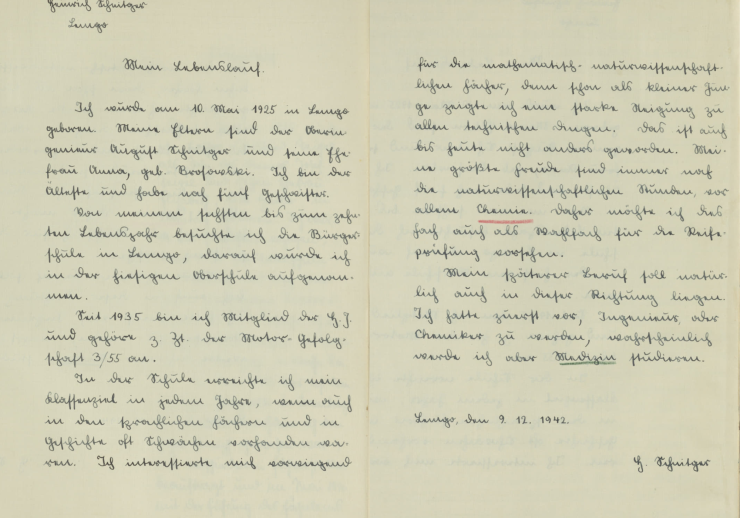 Heinrich Schnitger
Lemgo
Mein Lebenslauf.
Ich wurde am 10. Mai 1925 in Lemgo
geboren. Meine Eltern sind der Oberin-
genieur August Schnitger und seine Ehe-
frau Anna, geb. Brosowski. Ich bin der
Älteste und habe noch fünf Geschwister.
Von meinem sechsten bis zum zehn-
ten Lebensjahr besuchte ich die Bürger-
schule in Lemgo, darauf wurde ich
in der hiesigen Oberschule aufgenom-
men.
Seit 1935 bin ich Mitglied der H.J.
und gehöre z. Zt. der Motor-Gefolg-
schaft 3/55 an.
In der Schule erreichte ich mein
Klassenziel in jedem Jahre, wenn auch
in den sprachlichen Fächern und in
Geschichte oft Schwächen vorhanden wa-
ren. Ich interessierte mich vorwiegend
für die mathematisch-naturwissenschaft-
lichen Fächer, denn schon als kleiner Jun-
ge zeigte ich eine starke Neigung zu
allen technischen Dingen. Das ist auch
bis heute nicht anders geworden. Mei-
ne größte Freude sind immer noch
die naturwissenschaftlichen Stunden, vor
allem Chemie. Daher möchte ich dies
Fach auch als Wahlfach für die Reife-
prüfung vorsehen.
Mein späterer Beruf soll natür-
lich auch in dieser Richtung liegen.
Ich hatte zuerst vor, Ingenieur oder
Chemiker zu werden, wahrscheinlich
werde ich aber Medizin studieren.
Lemgo, den 9. 12. 1942.
H. Schnitger